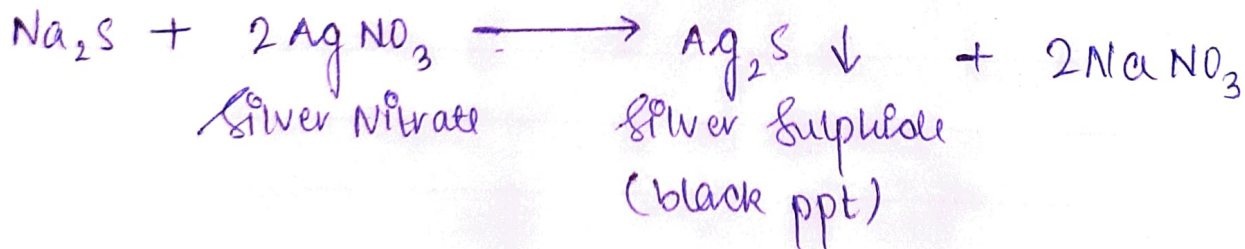 Na₂S + 2AgNO₃ ⟶ Ag₂S ↓ + 2NaNO₃
Silver Nitrate Silver Sulphide
(black ppt)